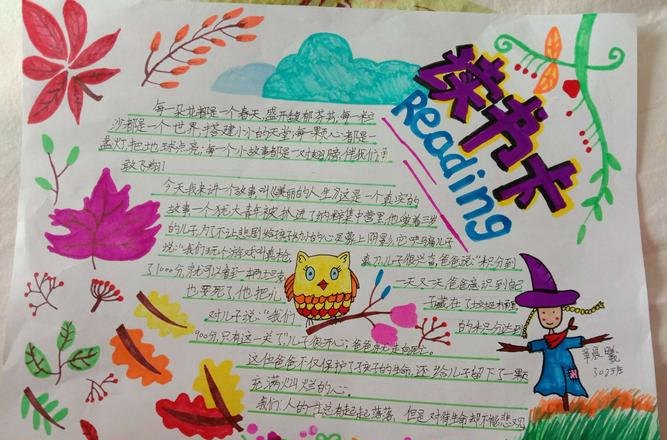 读书卡
Reading
每一朵花都是一个春天,盛开馥郁芬芳;每一粒
沙都是一个世界,搭建小小的天堂;每一颗心都是一
盏灯,把地球点亮;每一个小故事都是一对翅膀,伴我们
飞翔!
今天我来讲一个故事叫《美丽的人生》这是一个真实的
故事一个犹太青年被抓进了纳粹集中营里,他带着三岁
的儿子,为了不让悲剧给孩子幼小的心灵蒙上阴影,他哄骗儿子
说:“我们玩个游戏叫 儿子很兴奋,爸爸说:“积分到
了1000分,就可以拿到一辆 一天又一天爸爸意识到自己
也要死了,他把儿 子藏在了垃圾桶里
对儿子说:“我们 的积分达到
900分,只有这一关了”儿子很开心,爸爸
这位爸爸不仅保护了孩子的生命,还给儿子留下了一颗
充满灿烂的心。
我们人的 总有起起落落,但是对待生命却不能悲观,
302班